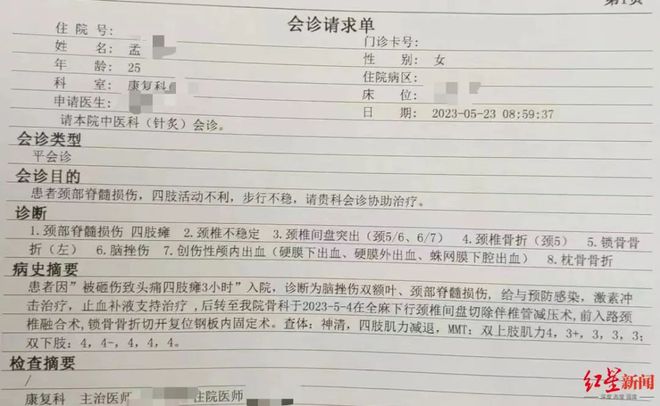 会诊请求单
住 院 号:
门诊卡号:
姓 名: 孟
性 别: 女
年 龄: 25
住院病区:
科 室: 康复科
床 位:
申请医生:
日 期: 2023-05-23 08:59:37
请本院中医科(针灸)会诊。
会诊类型
平会诊
会诊目的
患者颈部脊髓损伤,四肢活动不利,步行不稳,请贵科会诊协助治疗。
诊断
1.颈部脊髓损伤 四肢瘫 2.颈椎不稳定 3.颈椎间盘突出(颈5/6、6/7) 4.颈椎骨折(颈5) 5.锁骨骨
折(左) 6.脑挫伤 7.创伤性颅内出血(硬膜下出血、硬膜外出血、蛛网膜下腔出血) 8.枕骨骨折
病史摘要
患者因"被砸伤致头痛四肢瘫3小时"入院,诊断为脑挫伤双额叶、颈部脊髓损伤,给与预防感染,激素冲
击治疗,止血补液支持治疗,后转至我院骨科于2023-5-4在全麻下行颈椎间盘切除伴椎管减压术,前入路颈
椎融合术,锁骨骨折切开复位钢板内固定术。查体:神清,四肢肌力减退,MMT:双上肢肌力4,3+,3,3,3;
双下肢:4,4-,4,4,4。
检查摘要
/
康复科 主治医师 住院医师
红星新闻
深度 态度 温度